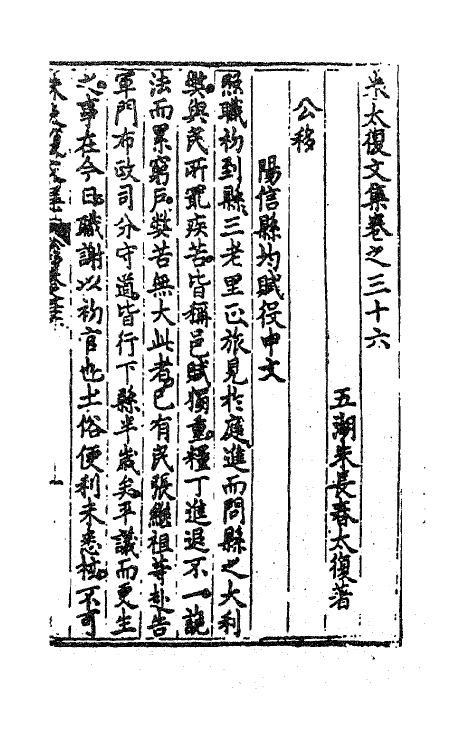 朱太復文集卷之三十六
五湖朱長春太復著
公移
陽信縣均賦役申文
照職初到縣三老里正旅見於庭進而問縣之大利
獘與民所冤疾苦皆稱邑賦獨重糧丁進退不一詭
法而累窮戶獘苦無大此者已有民張繼祖等赴告
軍門布政司分守道皆行下縣半歲矣平議而更生
之事在今日職謝以初官也土俗便利未悉極不可